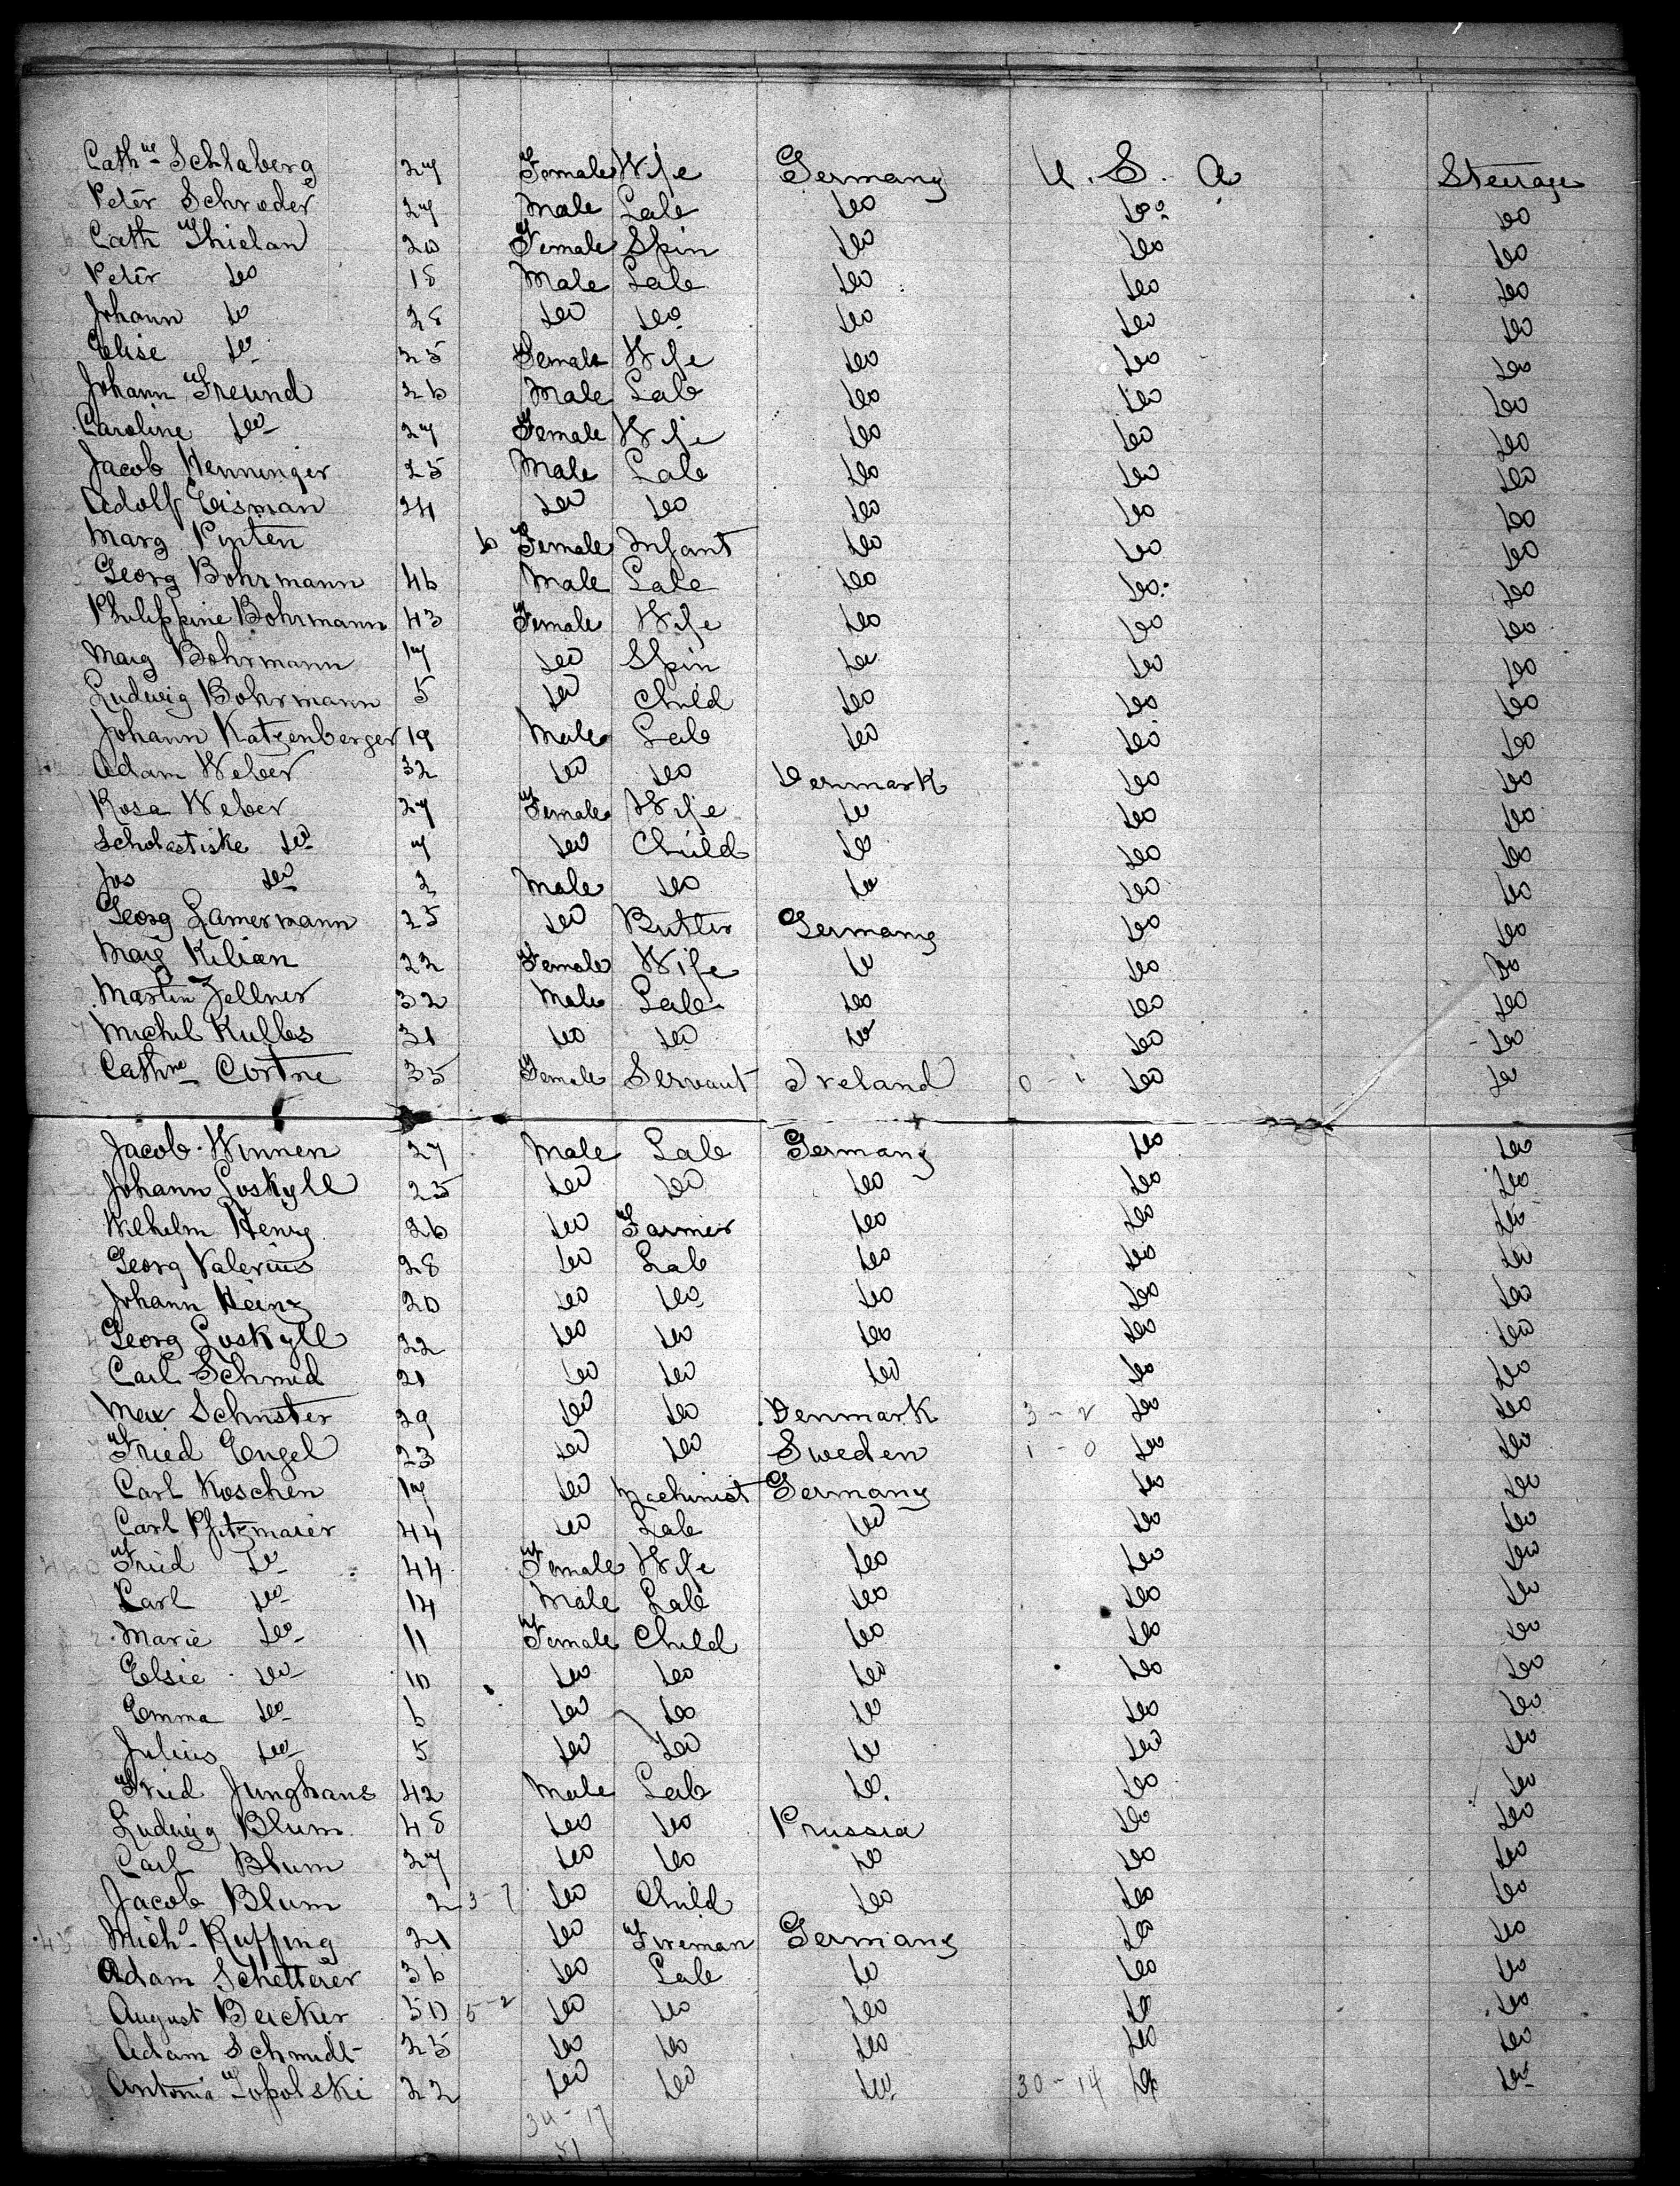 Cathne Schlaberg 27 Female Wife Germany U. S. A Steerage
Peter Schroder 27 Male Lab do do do
Cath Thielan 20 Female Spin do do do
Peter do 18 Male Lab do do do
Johann do 28 do do do do do
Elise do 25 Female Wife do do do
Johann Freund 26 Male Lab do do do
Caroline do 27 Female Wife do do do
Jacob Henninger 25 Male Lab do do do
Adolf Eisman 24 do do do do do
Marg Pinten 6 Female Infant do do do
Georg Bohrmann 46 Male Lab do do do
Philippine Bohrmann 43 Female Wife do do do
Marg Bohrmann 17 do Spin do do do
Ludwig Bohrmann 5 do Child do do do
Johann Katzenberger 19 Male Lab do do do
Adam Weber 32 do do Denmark do do
Rosa Weber 27 Female Wife do do do
Scholastiske do 7 do Child do do do
Jos do 2 Male do do do do
Georg Lamermann 25 do Germany do do
Marg Kilian 22 Female Wife do do do
Martin Zellner 32 Male Lab do do do
Michel Kulbs 21 do do do do do
Cathne Cortne 35 Female Servant Ireland 0 - 1 do do
Jacob Winnen 27 Male Lab Germany do do
Johann Loskyll 25 do do do do do
Wilhelm Henry 26 do Farmer do do do
Georg Valerius 28 do Lab do do do
Johann Heinz 20 do do do do do
Georg Loskyll 22 do do do do do
Carl Schmid 21 do do do do do
Max Schuster 29 do do Denmark 3 - 2 do do
Fried Engel 23 do do Sweden 1 - 0 do do
Carl Koschen 17 do Machinist Germany do do
Carl Pfitzmaier 44 do Lab do do do
Fried do 44 Female Wife do do do
Carl do 14 Male Lab do do do
Marie do 11 Female Child do do do
Elsie do 10 do do do do do
Emma do 6 do do do do do
Julius do 5 do do do do do
Fried Junghans 42 Male Lab do do do
Ludwig Blum 48 do do Prussia do do
Carl Blum 27 do do do do do
Jacob Blum 2 3-7 do Child do do do
Mich. Ruffing 21 do Fireman Germany do do
Adam Schetterer 36 do Lab do do do
August Beicker 50 5-2 do do do do do
Adam Schmidt 25 do do do do do
Antonia Topolski 22 do do do 30 - 14 do do
34 - 17
51